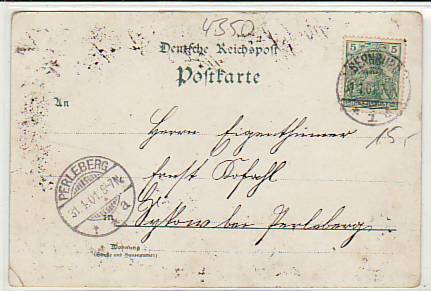 4350
Deutsche Reichspost
Postkarte
5 5
BERNBURG
1
An
Herrn Eigenthümer
15,-
Ernst
PERLEBERG
31.1.01.6-7N.
a
in bei Perleberg.
Wohnung
(Straße und Hausnummer)